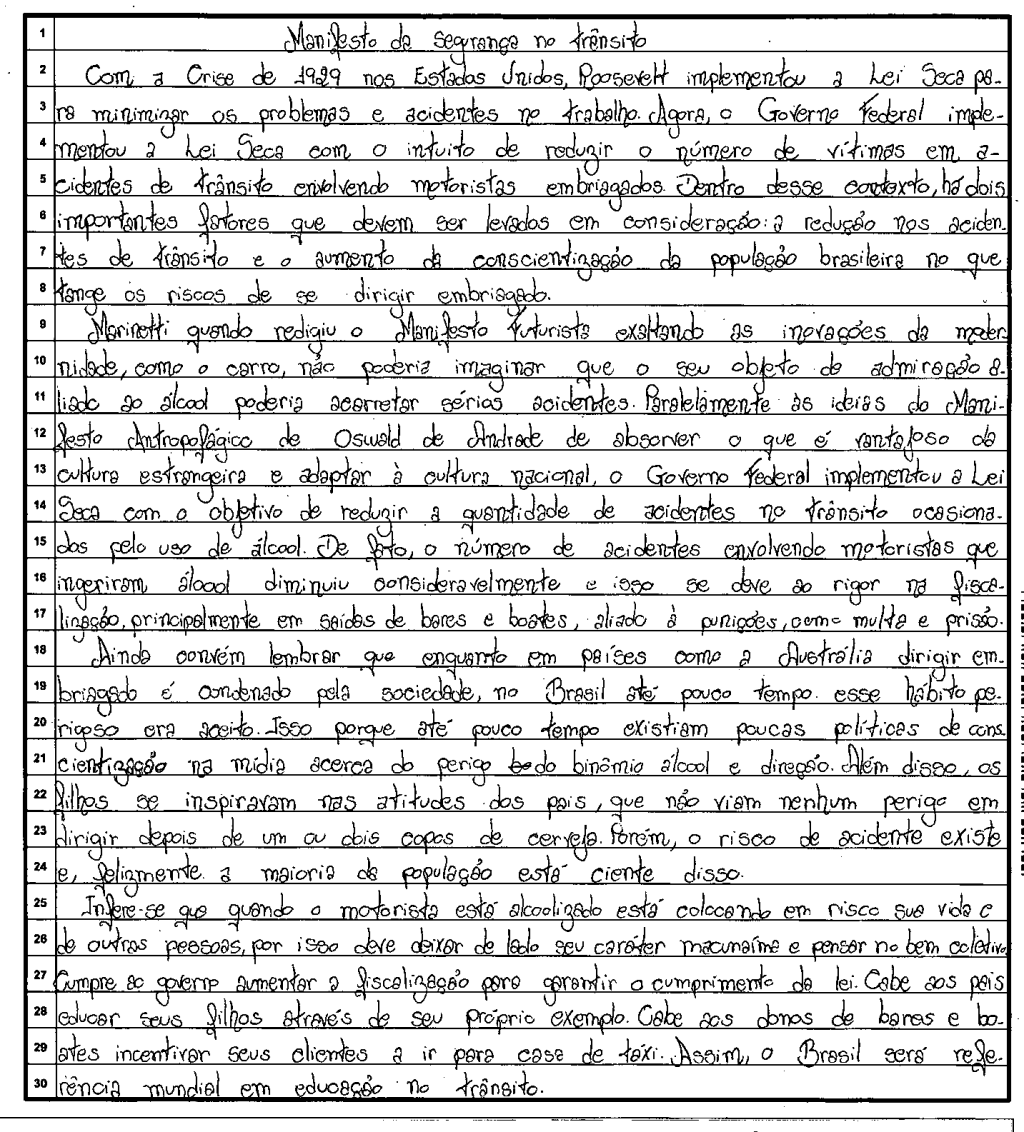 1 Manifesto da segurança no trânsito
2 Com a Crise de 1929 nos Estados Unidos, Roosevelt implementou a Lei Seca pa-
3 ra minimizar os problemas e acidentes no trabalho. Agora, o Governo Federal imple-
4 mentou a Lei Seca com o intuito de reduzir o número de vítimas em a-
5 cidentes de trânsito envolvendo motoristas embriagados. Dentro desse contexto, há dois
6 importantes fatores que devem ser levados em consideração: a redução nos aciden
7 tes de trânsito e o aumento da conscientização da população brasileira no que
8 tange os riscos de se dirigir embriagado.
9 Marinetti quando redigiu o Manifesto Futurista exaltando as inovações da moder
10 nidade, como o carro, não poderia imaginar que o seu objeto de admiração a-
11 liado ao álcool poderia acarretar sérios acidentes. Paralelamente às ideias do Mani-
12 festo Antropofágico de Oswald de Andrade de absorver o que é vantajoso da
13 cultura estrangeira e adaptar à cultura nacional, o Governo Federal implementou a Lei
14 Seca com o objetivo de reduzir a quantidade de acidentes no trânsito ocasiona-
15 dos pelo uso de álcool. De fato, o número de acidentes envolvendo motoristas que
16 ingeriram álcool diminuiu consideravelmente e isso se deve ao rigor na fisca-
17 lização, principalmente em saídas de bares e boates, aliado à punições, como multa e prisão.
18 Ainda convém lembrar que enquanto em países como a Austrália dirigir em-
19 briagado é condenado pela sociedade, no Brasil até pouco tempo esse hábito pe-
20 rigoso era aceito. Isso porque até pouco tempo existiam poucas políticas de cons
21 cientização na mídia acerca do perigo do binômio álcool e direção. Além disso, os
22 filhos se inspiravam nas atitudes dos pais, que não viam nenhum perigo em
23 dirigir depois de um ou dois copos de cerveja. Porém, o risco de acidente existe
24 e, felizmente a maioria da população está ciente disso.
25 Infere-se que quando o motorista está alcoolizado está colocando em risco sua vida e
26 de outras pessoas, por isso deve deixar de lado seu caráter macunaíma e pensar no bem coletivo.
27 Cumpre ao governo aumentar a fiscalização para garantir o cumprimento da lei. Cabe aos pais
28 educar seus filhos através de seu próprio exemplo. Cabe aos donos de bares e bo-
29 ates incentivar seus clientes a ir para casa de táxi. Assim, o Brasil será refe-
30 rência mundial em educação no trânsito.